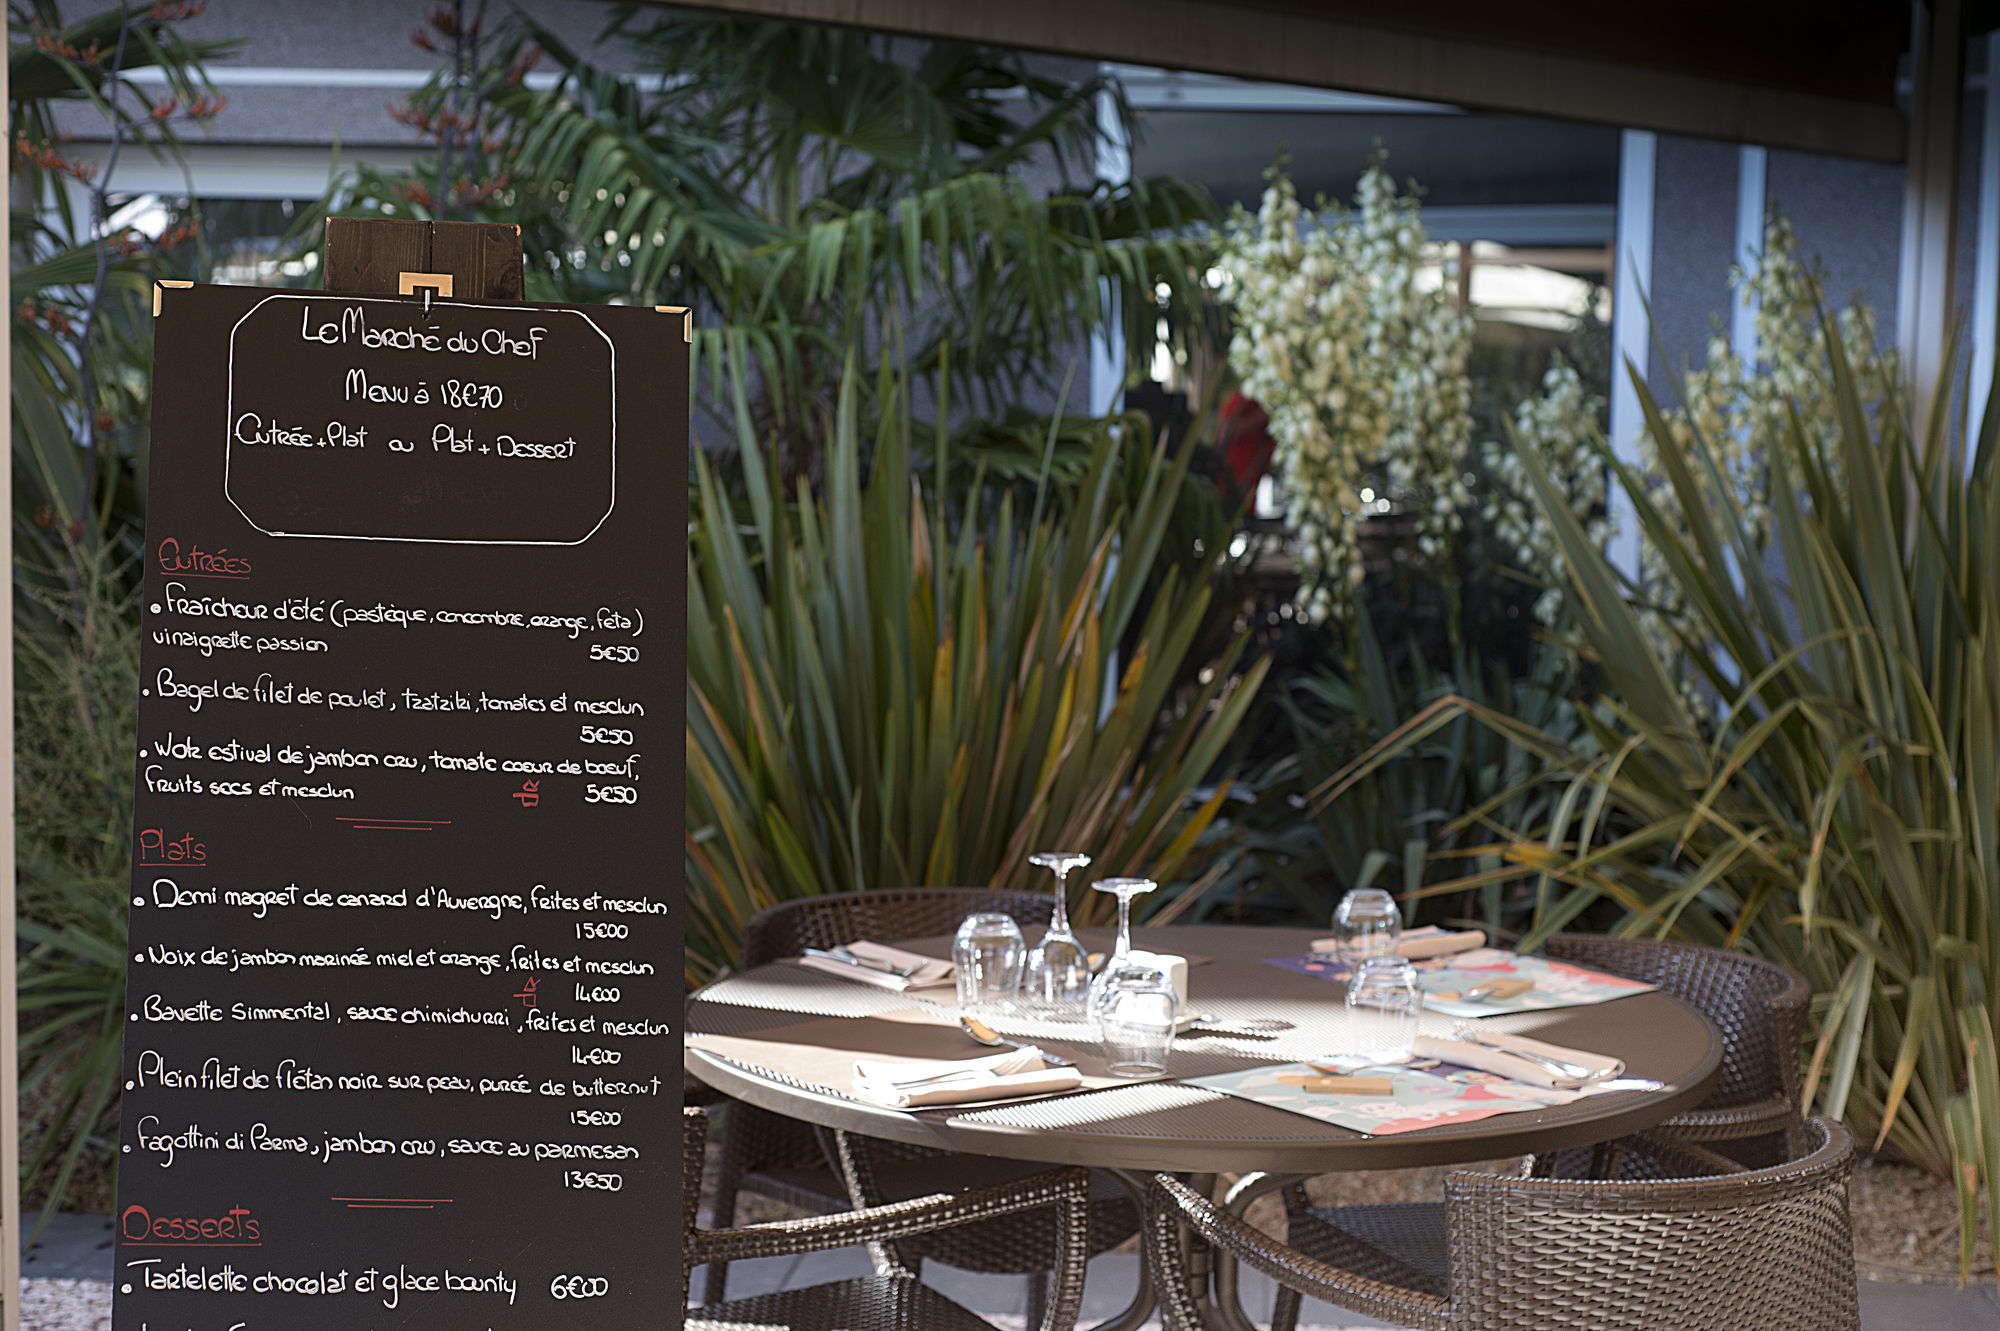 Le Marché du Chef
Menu à 18€70
Entrée + Plat ou Plat + Dessert
Entrées
• Fraîcheur d'été (pastèque, concombre, orange, feta)
vinaigrette passion
5€50
• Bagel de filet de poulet, tzatziki, tomates et mesclun
5€50
• Wok estival de jambon cru, tomate coeur de boeuf,
fruits secs et mesclun 5€50
Plats
• Demi magret de canard d'Auvergne, frites et mesclun
15€00
• Noix de jambon marinée miel et orange, frites et mesclun
14€00
• Bavette Simmental, sauce chimichurri, frites et mesclun
14€00
• Plein filet de flétan noir sur peau, purée de butternut
15€00
• Fagottini di Parma, jambon cru, sauce au parmesan
13€50
Desserts
• Tartelette chocolat et glace bounty 6€00